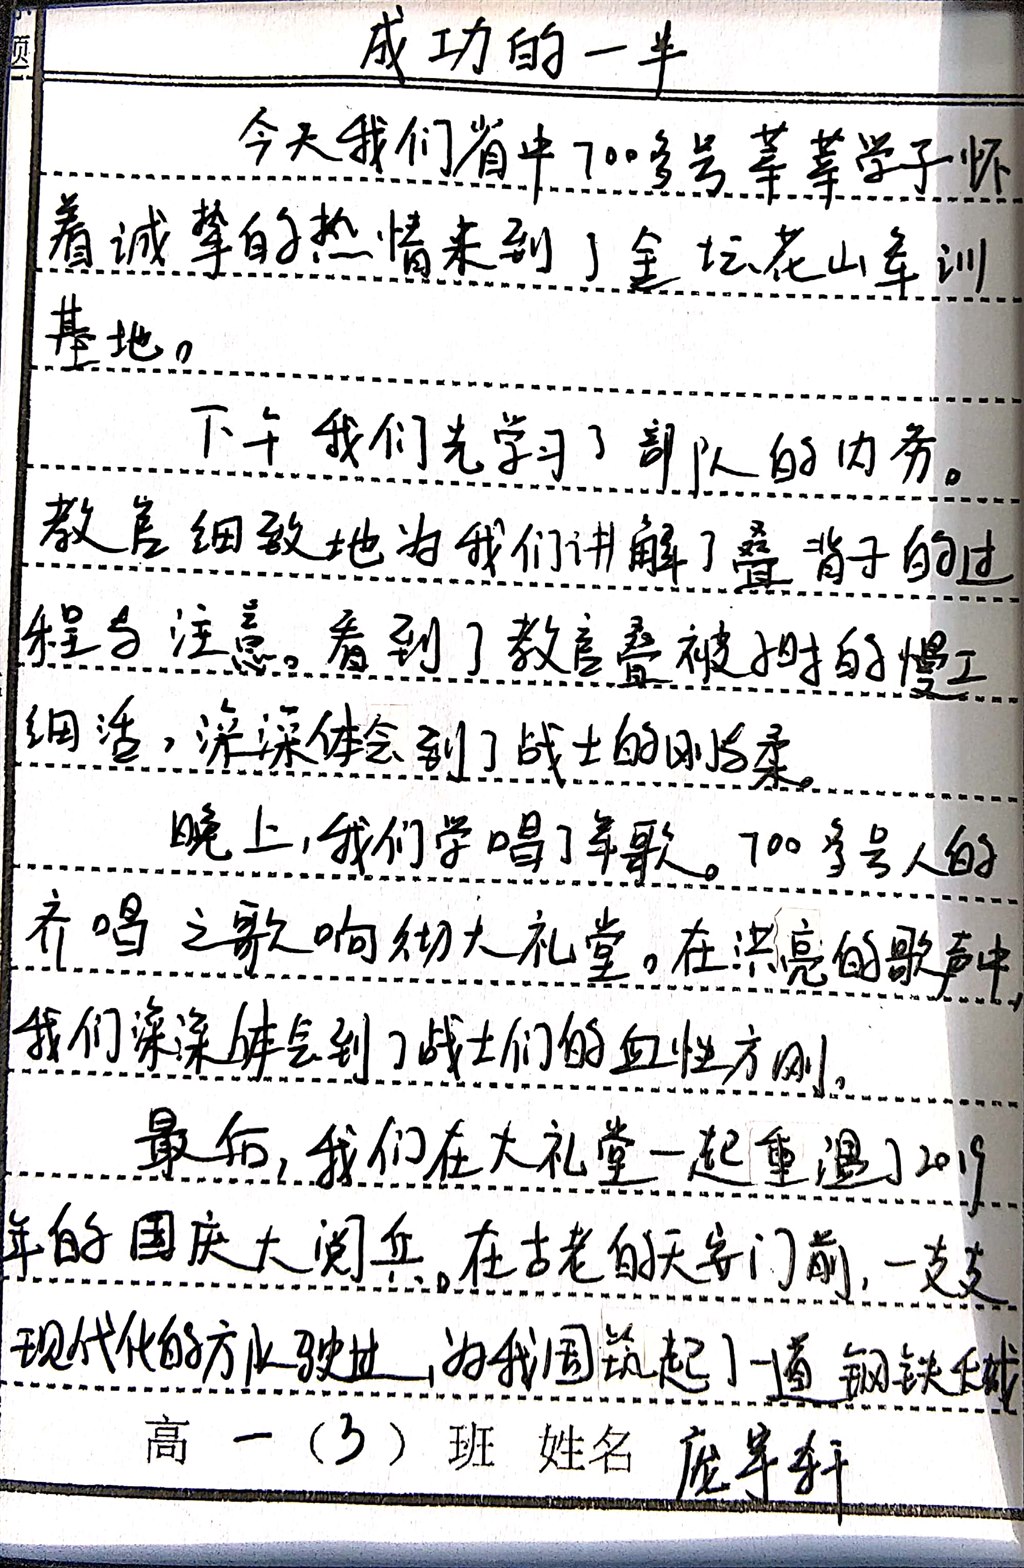 题
成功的一半
今天我们省中700多号莘莘学子怀
着诚挚的热情来到了金坛花山军训
基地。
下午我们先学习了部队的内务。
教官细致地为我们讲解了叠背子的过
程与注意。看到了教官叠被子时的慢工
细活，深深体会到了战士的刚与柔。
晚上，我们学唱了军歌。700多号人的
齐唱之歌响彻大礼堂。在洪亮的歌声中，
我们深深体会到了战士们的血性方刚。
最后，我们在大礼堂一起重温了2019
年的国庆大阅兵。在古老的天安门前，一支支
现代化的方队驶过，为我国筑起了一道钢铁长城
高一（3）班 姓名 庞宇轩